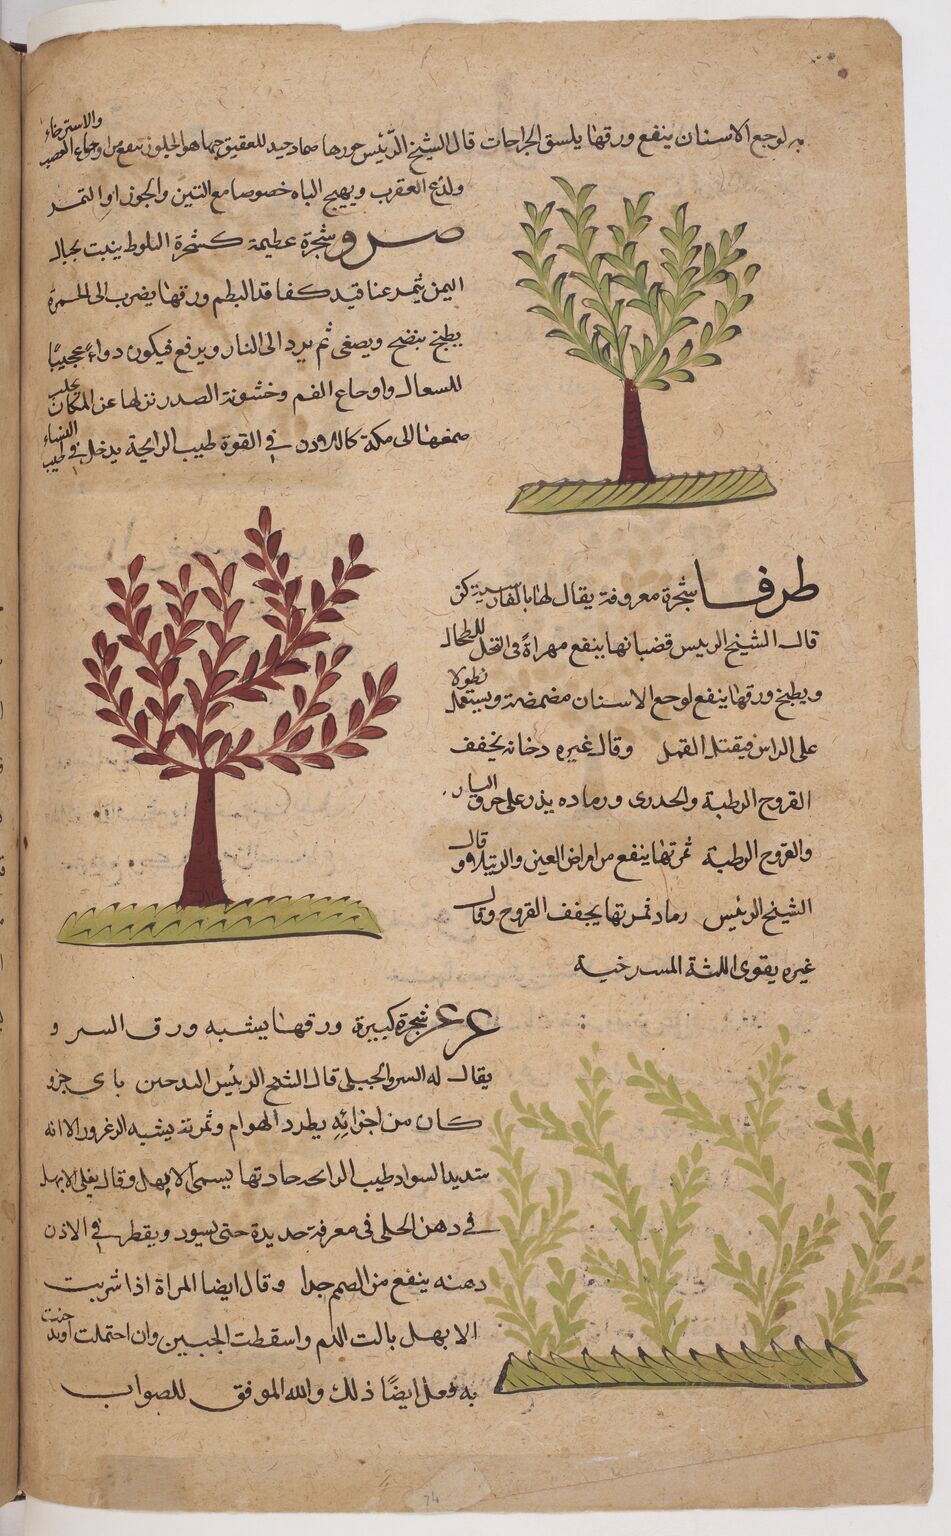 به لوجع الاسنان ينفع ورقها يلسق الجراحات قال الشيخ الرئيس جوزها ضماد جيد للعقيق جها هو الجلوز ينفع من اوجاع العصب
والاسترخاء
ولدغ العقرب ويهيج الباه خصوصا مع التين والجوز او التمر
ضرو شجرة عظيمة كشجرة البلوط ينبت بجبال
اليمن يثمر عناقيد كعناقد البطم ورقها يضرب الى الحمرة
يطبخ بنضج ويصفى ثم يرد الى النار ويرفع فيكون دواءً عجيبًا
للسعال واوجاع الفم وخشونة الصدر نزلها عن المكان يجلب
صمغها الى مكة كاللاودن في القوة طيب الرايحة يدخل في طيب
النساء
طرفا شجرة معروفة يقال لها بالفارسية كز
قال الشيخ الرئيس قضبانها ينفع مهراةً في الخل للطحال
ويطبخ ورقها ينفع لوجع الاسنان مضمضة ويستعمل نطولا
على الراس فيقتل القمل وقال غيره دخانه يخفف
القروح الرطبة والجدرى ورماده يذر على حرق النار
والقروح الرطبة ثمرتها ينفع من امراض العين والرتيلا و قال
الشيخ الرئيس رماد ثمرتها يجفف القروح وقال
غيره يقوى اللثة المسرخية
عرعر شجرة كبيرة ورقها يشبه ورق السرو
يقال له السرو الجبلى قال الشيخ الرئيس التدخين باى جزو
كان من اجزائه يطرد الهوام وثمرته يشبه الزعرور الا انه
شديد السواد طيب الرايحه حادتها يسمى الابهل وقال يغلى الابهل
في دهن الحل في مغرفة حديدة حتى يسود ويقطر في الاذن
دهنه ينفع من الصمم جدا وقال ايضا المراة اذا شربت
الابهل بالت الدم واسقطت الجنين وان احتملت او دخنت
به فعل ايضًا ذلك والله الموفق للصواب
74